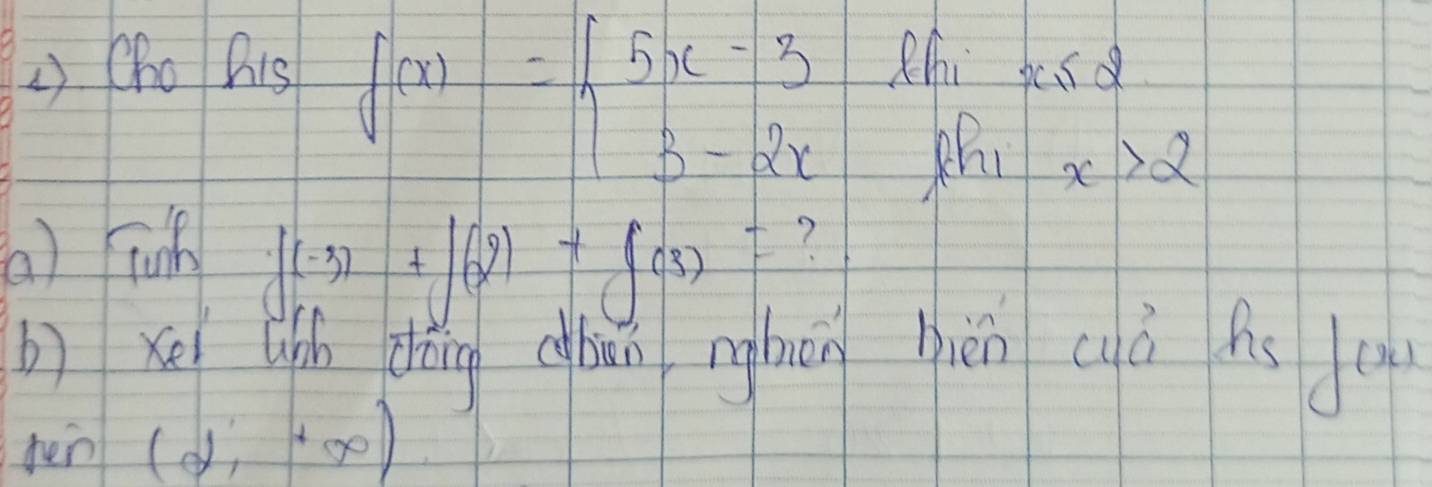 1) Cho h/s f(x) = { 5x - 3 khi x ≤ 2
3 - 2x khi x > 2
a) Tính f(-3) + f(2) + f(3) = ?
b) xét tính đồng biến, nghiến biến của hs f(x)
trên (2; +∞)